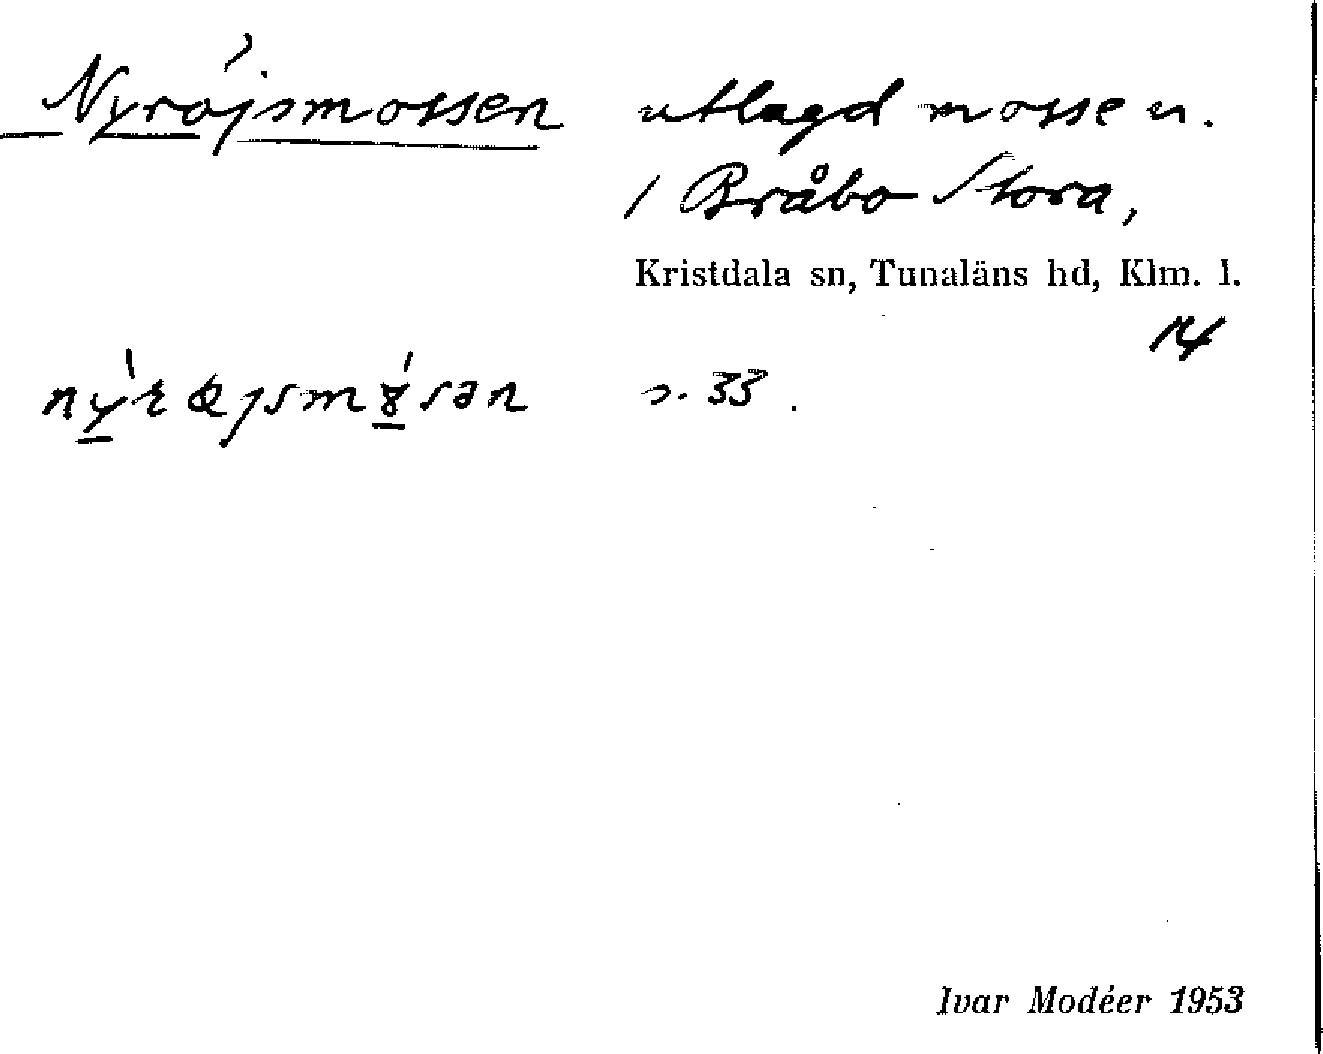 Nyröjsmossen utlagd mosse u.
/ Bråbo Stora,
Kristdala sn, Tunaläns hd, Klm. l.
14
s. 33.
Ivar Modéer 1953